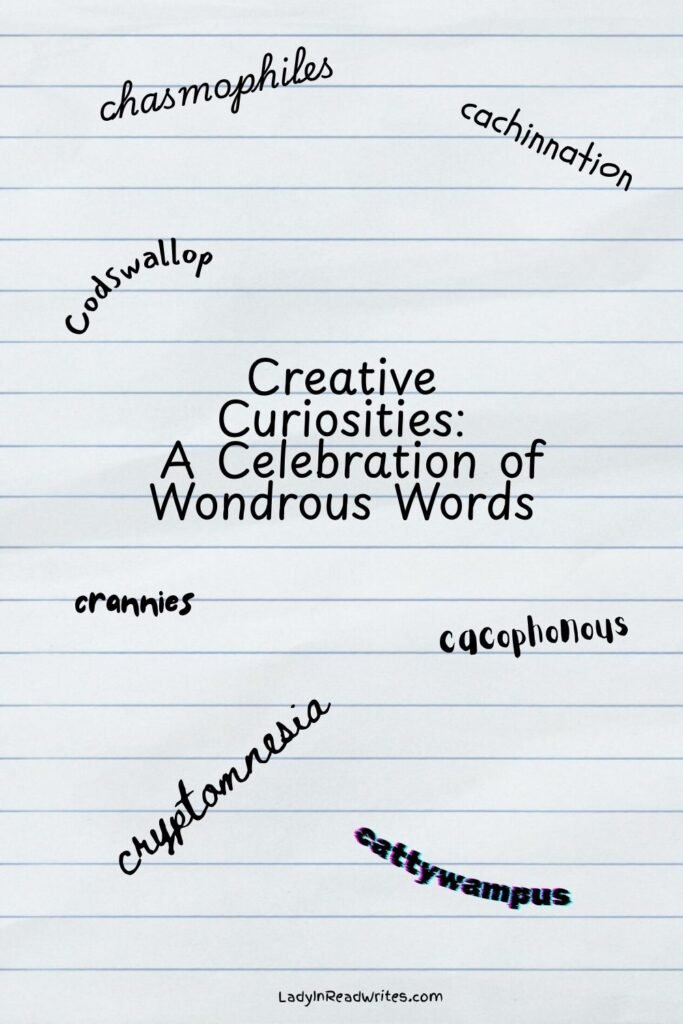 chasmophiles
cachinnation
Codswallop
Creative
Curiosities:
A Celebration of
Wondrous Words
crannies
cacophonous
cryptomnesia
cattywampus
LadyInReadWrites.com